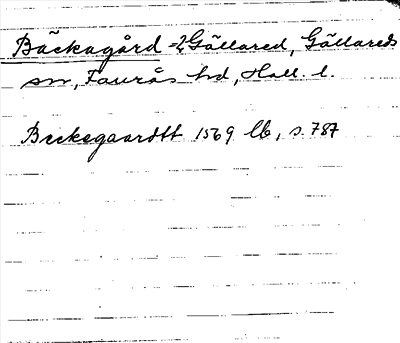 Bäckagård =2, Gällared, Gällareds
sn, Faurås hd, Hall. l.
Beckegaardtt 1569 lb, s. 787